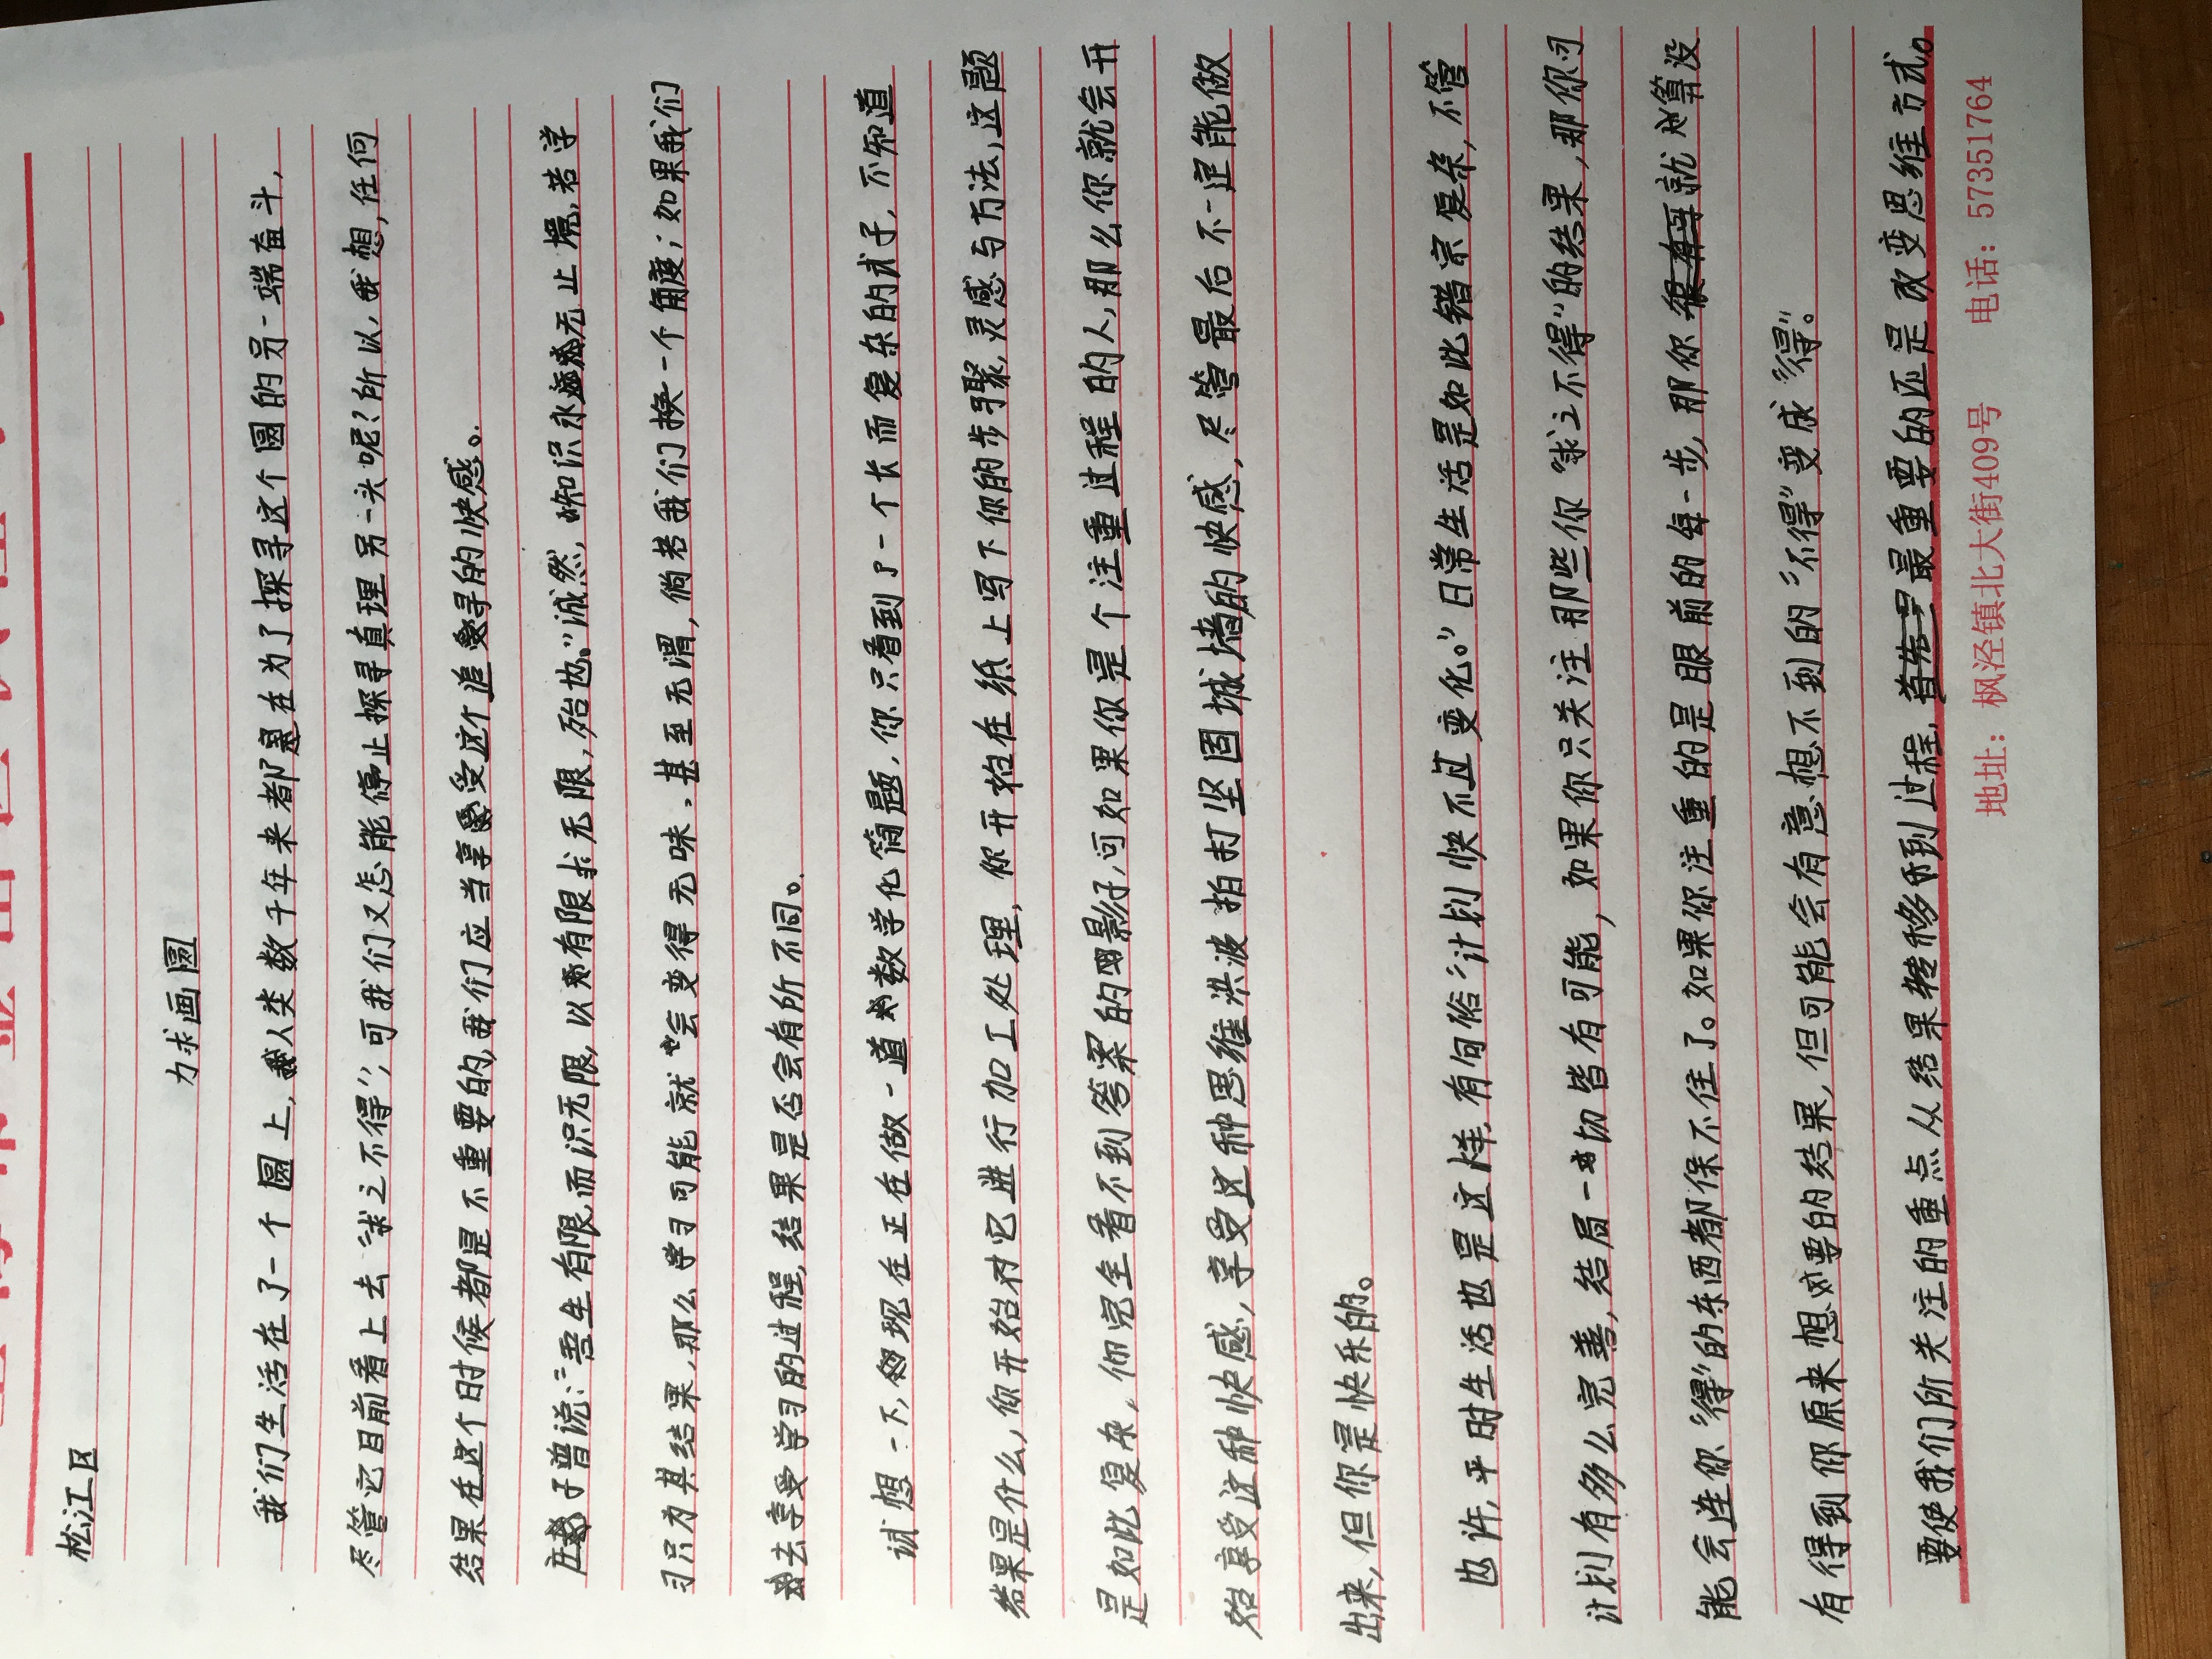 松江区
力求画圆
我们生活在了一个圆上，人类数千年来都是在为了探寻这个圆的另一端奋斗，
尽管它目前看上去“求之不得”，可我们又怎能停止探寻真理另一头呢？所以，我想，任何
结果在这个时候都是不重要的，我们应当享受这个追寻的快感。
庄子普说：“吾生有限，而识无限，以有限求无限，殆也。”诚然，知识永无止境，若学
习只为其结果，那么学习可能就会变得无味，甚至无谓，倘若我们换一个角度；如果我们
去享受学习的过程，结果是否会有所不同。
试想一下，现在正在做一道数学化简题，你只看到了一个长而复杂的式子，不知道
结果是什么，你开始对它进行加工处理，你开始在纸上写下你的步骤，灵感与方法，这题
是如此复杂，你完全看不到答案的影子，可如果你是个注重过程的人，那么你就会开
始享受这种快感，享受这种思维洪波拍打坚固城墙的快感，尽管最后不一定能做
出来，但你是快乐的。
也许，平时生活也是这样，有句俗“计划快不过变化。”日常生活是如此错宗复杂，不管
计划有多么完善，结局一切皆有可能，如果你只关注那些你“求之不得”的结果，那你可
能会连你“得”的东西都保不住了。如果你注重的是眼前的每一步，那你就算没
有得到你原来想要的结果，但可能会有意想不到的“不得”变成“得”。
要使我们所关注的重点从结果转移到过程，最重要的还是改变思维方式。
地址：枫泾镇北大街409号 电话：57351764